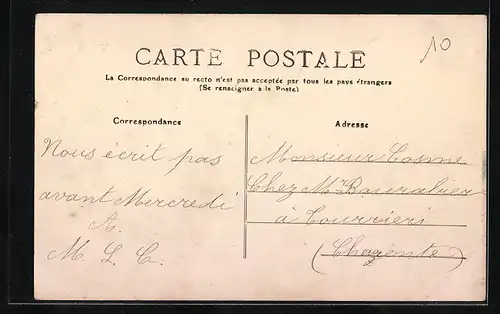 CARTE POSTALE
10
La Correspondance au recto n'est pas acceptée par tous les pays étrangers
(Se renseigner à la Poste)
Correspondance
Nous écrit pas
avant Mercredi
A.
M. L. C.
Adresse
Monsieur Cosme
Chez Mr
à Courriers
(Charente)